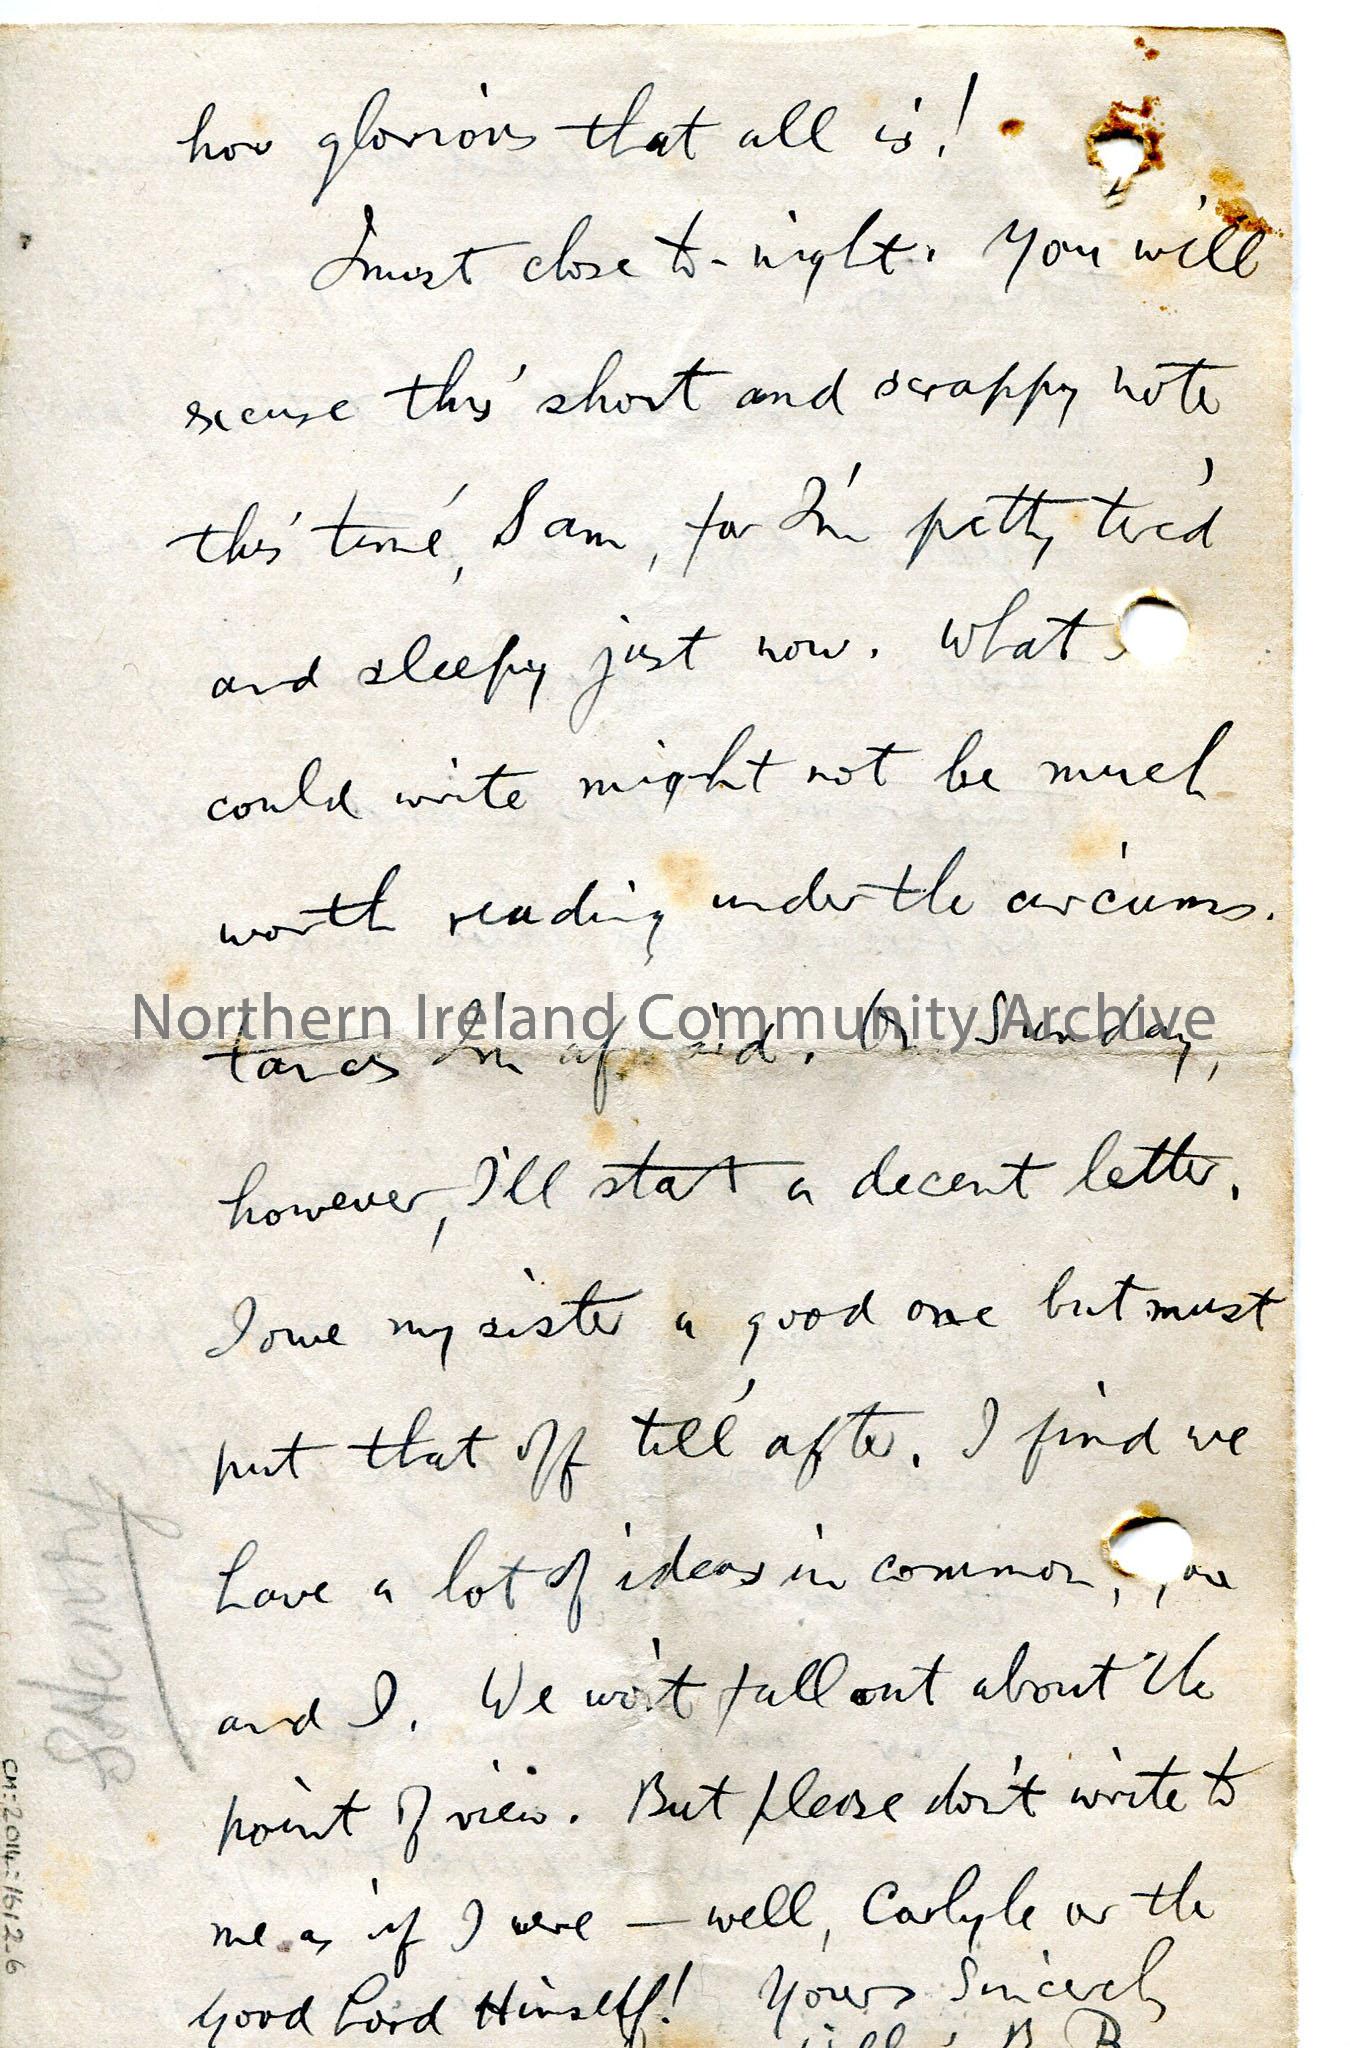 how glorious that all is!
I must close to-night. You will
excuse this short and scrappy note
this time, Sam, for I'm pretty tired
and sleepy just now. What
could write might not be much
worth reading under the circums.
tances I'm afraid. On Sunday,
however, I'll start a decent letter.
I owe my sister a good one but must
put that off till after. I find we
have a lot of ideas in common,
and I. We won't fall out about the
point of view. But please don't write to
me as if I were — well, Carlyle or the
good Lord Himself! Yours Sincerely
B. B.
Northern Ireland Community Archive
CM:2014:161 2.6